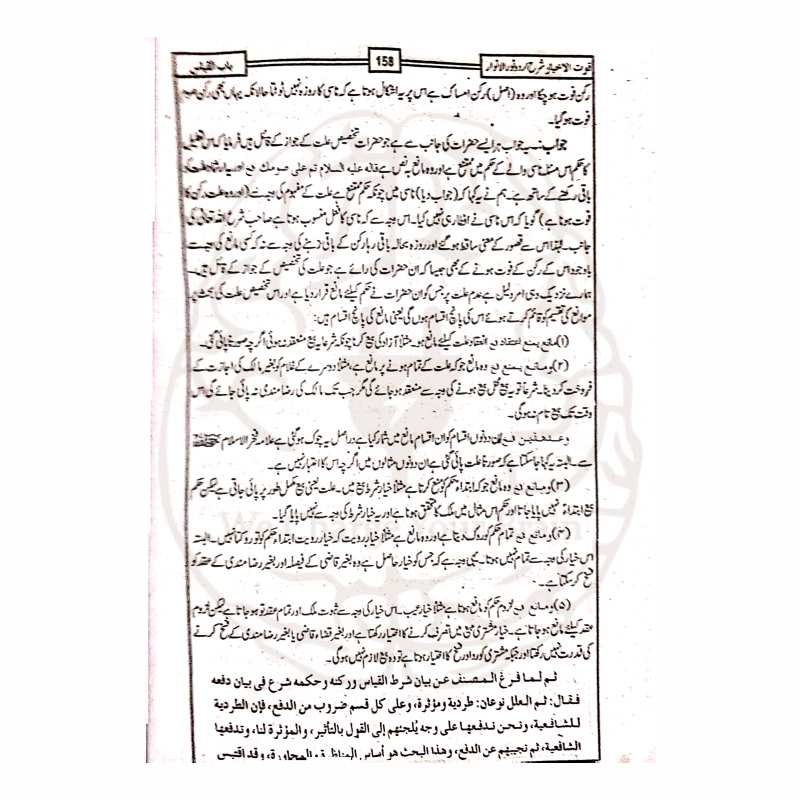 قوت الاخیار شرح اردو نور الانوار 158 باب القیاس
رکن فوت ہو چکا اور وہ (اصل) رکن امساک ہے اس پر یہ اشکال ہوتا ہے کہ ناسی کا روزہ نہیں ٹوٹتا حالانکہ یہاں بھی رکن صوم
فوت ہو گیا۔
جواب:۔ یہ جواب ہر ایسے حضرات کی جانب سے ہے جو حضرات تخصیص علت کے جواز کے قائل ہیں فرمایا کہ اس تعلیل
کا حکم اس مسئلہ ناسی والے کے حکم میں ممتنع ہے اور وہ مانع یہ نص ہے قاله عليه السلام تم على صومك فع اور یہ ارشاد علت کے
باقی رکھنے کے ساتھ ہے۔ ہم نے یہ کہا کہ (جواب دیا) ناسی میں چونکہ حکم ممتنع ہے علت کے مفہوم کی وجہ سے (اور وہ علت رکن کا
فوت ہونا ہے) گویا کہ اس ناسی نے افطار ہی نہیں کیا۔ اس وجہ سے کہ ناسی کا فعل منسوب ہوتا ہے صاحب شرع اللہ تعالیٰ کی
جانب۔ لہٰذا اس سے قصور کے معنی ساقط ہو گئے اور روزہ بحالہ باقی رہا رکن کے باقی رہنے کی وجہ سے نہ کہ کسی مانع کی وجہ سے
باوجود اس کے رکن کے فوت ہونے کے بھی جیسا کہ ان حضرات کی رائے ہے جو علت کی تخصیص کے جواز کے قائل ہیں۔
ہمارے نزدیک وہی امر دلیل ہے عدم علت پر جس کو ان حضرات نے حکم کیلئے مانع قرار دیا ہے اور اس تخصیص علت کی بحث پر
موانع کی تقسیم کو قائم کرتے ہوئے اس کی پانچ اقسام ہوں گی یعنی مانع کی پانچ اقسام ہیں:
(۱) مانع یمنع انتقاد فع انعقاد علت کیلئے مانع ہو۔ مثلاً آزاد کی بیع کرنا چونکہ شرعاً یہ بیع منعقد نہ ہوئی اگرچہ صورۃً پائی گئی۔
(۲) و مانع یمنع فع وہ مانع جو کہ علت کے تمام ہونے پر مانع ہے، مثلاً دوسرے کے غلام کو بغیر مالک کی اجازت کے
فروخت کر دینا۔ شرعاً تو یہ بیع محل بیع ہونے کی وجہ سے منعقد ہو جائے گی مگر جب تک مالک کی رضامندی نہ پائی جائے گی اس
وقت تک بیع تام نہ ہوگی۔
وعد ھذین فع ان دونوں اقسام کو ان اقسام مانع میں شمار کیا ہے دراصل یہ چوک ہو گئی ہے علامہ فخر الاسلام
سے۔ البتہ یہ کہا جا سکتا ہے کہ صورۃً علت پائی گئی ہے ان دونوں مثالوں میں اگرچہ اس کا اعتبار نہیں ہے۔
(۳) و مانع فع وہ مانع جو کہ ابتداءً حکم کو منع کرتا ہے مثلاً خیار شرط بیع میں۔ علت یعنی بیع مکمل طور پر پائی جاتی ہے لیکن حکم
بیع ابتداءً نہیں پایا جاتا اور حکم اس مثال میں ملک کا متحقق ہونا ہے اور یہ خیار شرط کی وجہ سے نہیں پایا گیا۔
(۴) و مانع فع تمام حکم کو روک دیتا ہے اور وہ مانع ہے مثلاً خیار رویت کہ خیار رویت ابتداءً حکم کو تو روکتا نہیں۔ البتہ
اس خیار کی وجہ سے تمام نہیں ہوتا۔ یہی وجہ ہے کہ جس کو خیار حاصل ہے وہ بغیر قاضی کے فیصلہ اور بغیر رضامندی کے عقد کو
فسخ کر سکتا ہے۔
(۵) و مانع فع لزوم حکم کو مانع ہوتا ہے مثلاً خیار عیب۔ اس خیار کی وجہ سے ثبوت ملک اور تمام عقد تو ہو جاتا ہے لیکن لزوم
عقد کیلئے مانع ہو جاتا ہے۔ خیار مشتری مبیع میں تصرف کرنے کا اختیار رکھتا ہے اور بغیر قضاء قاضی یا بغیر رضامندی کے فسخ کرنے
کی قدرت نہیں رکھتا اور جبکہ مشتری کو رد اور فسخ کا اختیار ہوتا ہے تو وہ بیع لازم نہیں ہوگی۔
ثم لما فرغ المصنف عن بيان شرط القياس وركنه وحكمه شرع فى بيان دفعه
فقال: ثم العلل نوعان: طردية ومؤثرة، وعلى كل قسم ضروب من الدفع، فإن الطردية
للشافعية، ونحن ندفعها على وجه يُلجئهم إلى القول بالتأثير، والمؤثرة لنا، وتدفعها
الشافعية، ثم نجيبهم عن الدفع، وهذا البحث هو أساس المناظرة والمحاورة، وقد اقتبس